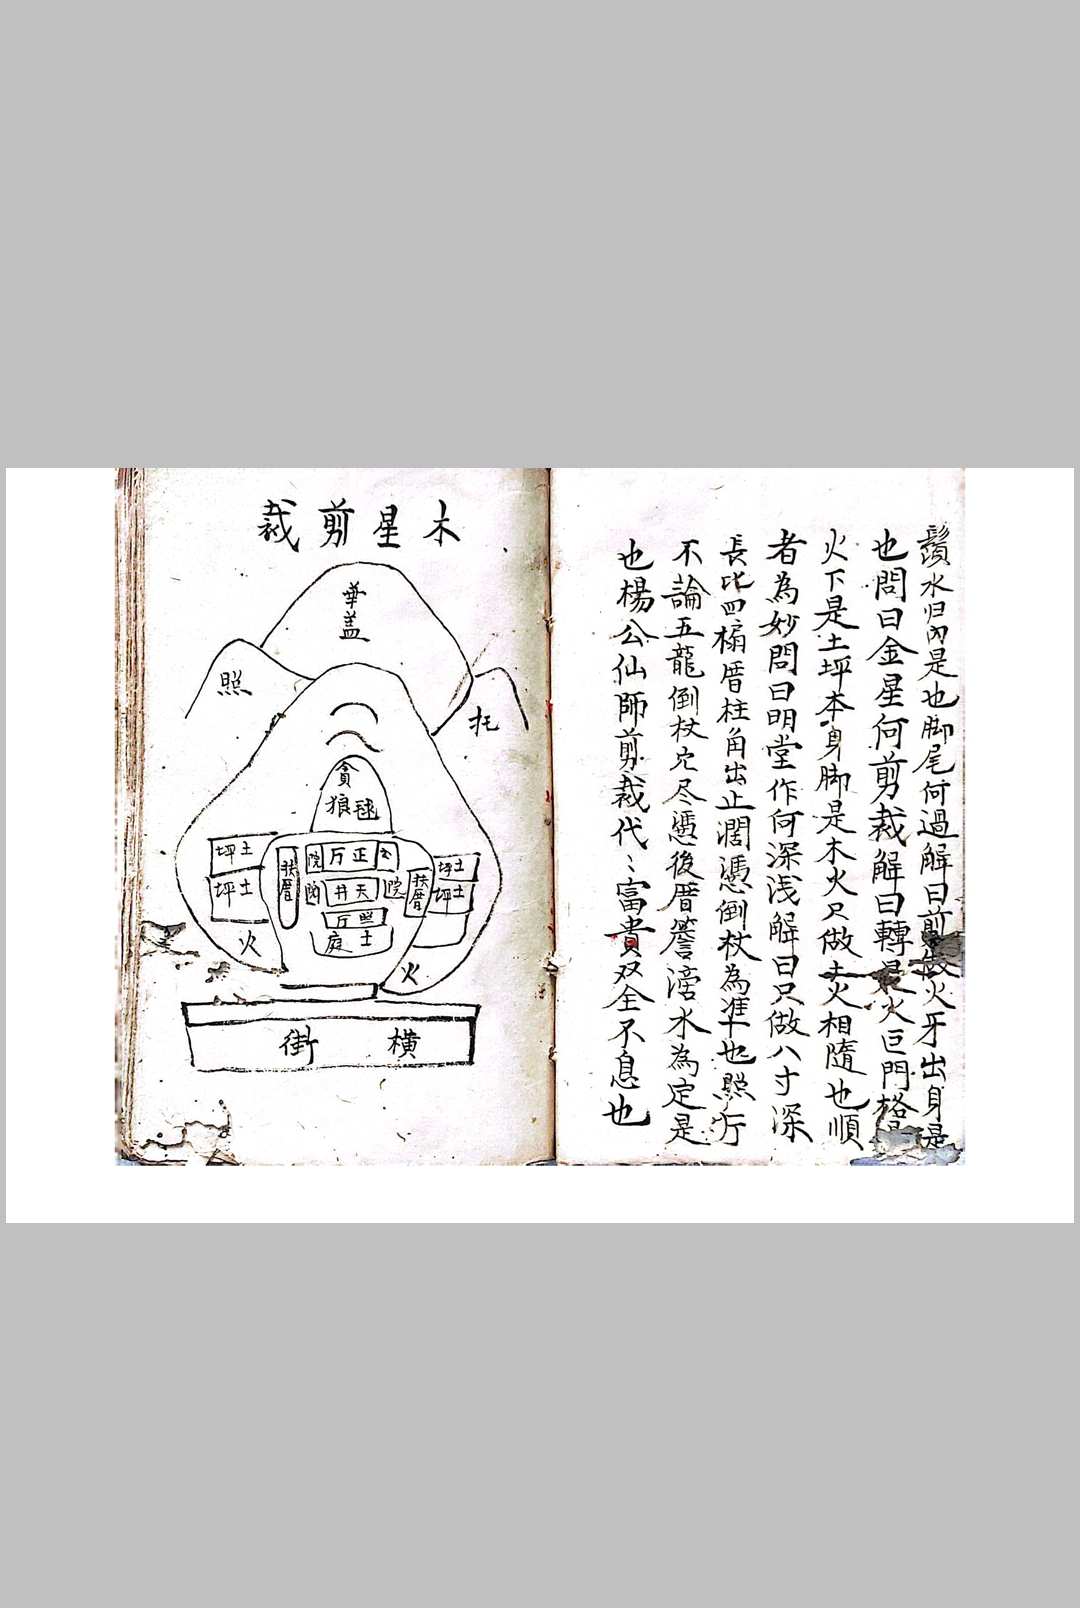 鬚水归內是也脚尾何過解曰前火牙出身是
也問曰金星何剪裁解曰轉是火巨門格
火下是土坪本身脚是木火只做土火相隨也順
者為妙問曰明堂作何深浅解曰只做八寸深
長比四楄厝柱角出止濶憑倒杖為准也照厅
不論五龍倒杖穴尽憑後厝簷滴水為定是
也楊公仙師剪裁代々富貴双全不息也
木星剪裁
華盖
照
托
貪狼毬
土坪
土坪
扶厝
院
正厅
天井
院
照厅
土庭
扶厝
土坪
土坪
火
火
橫街